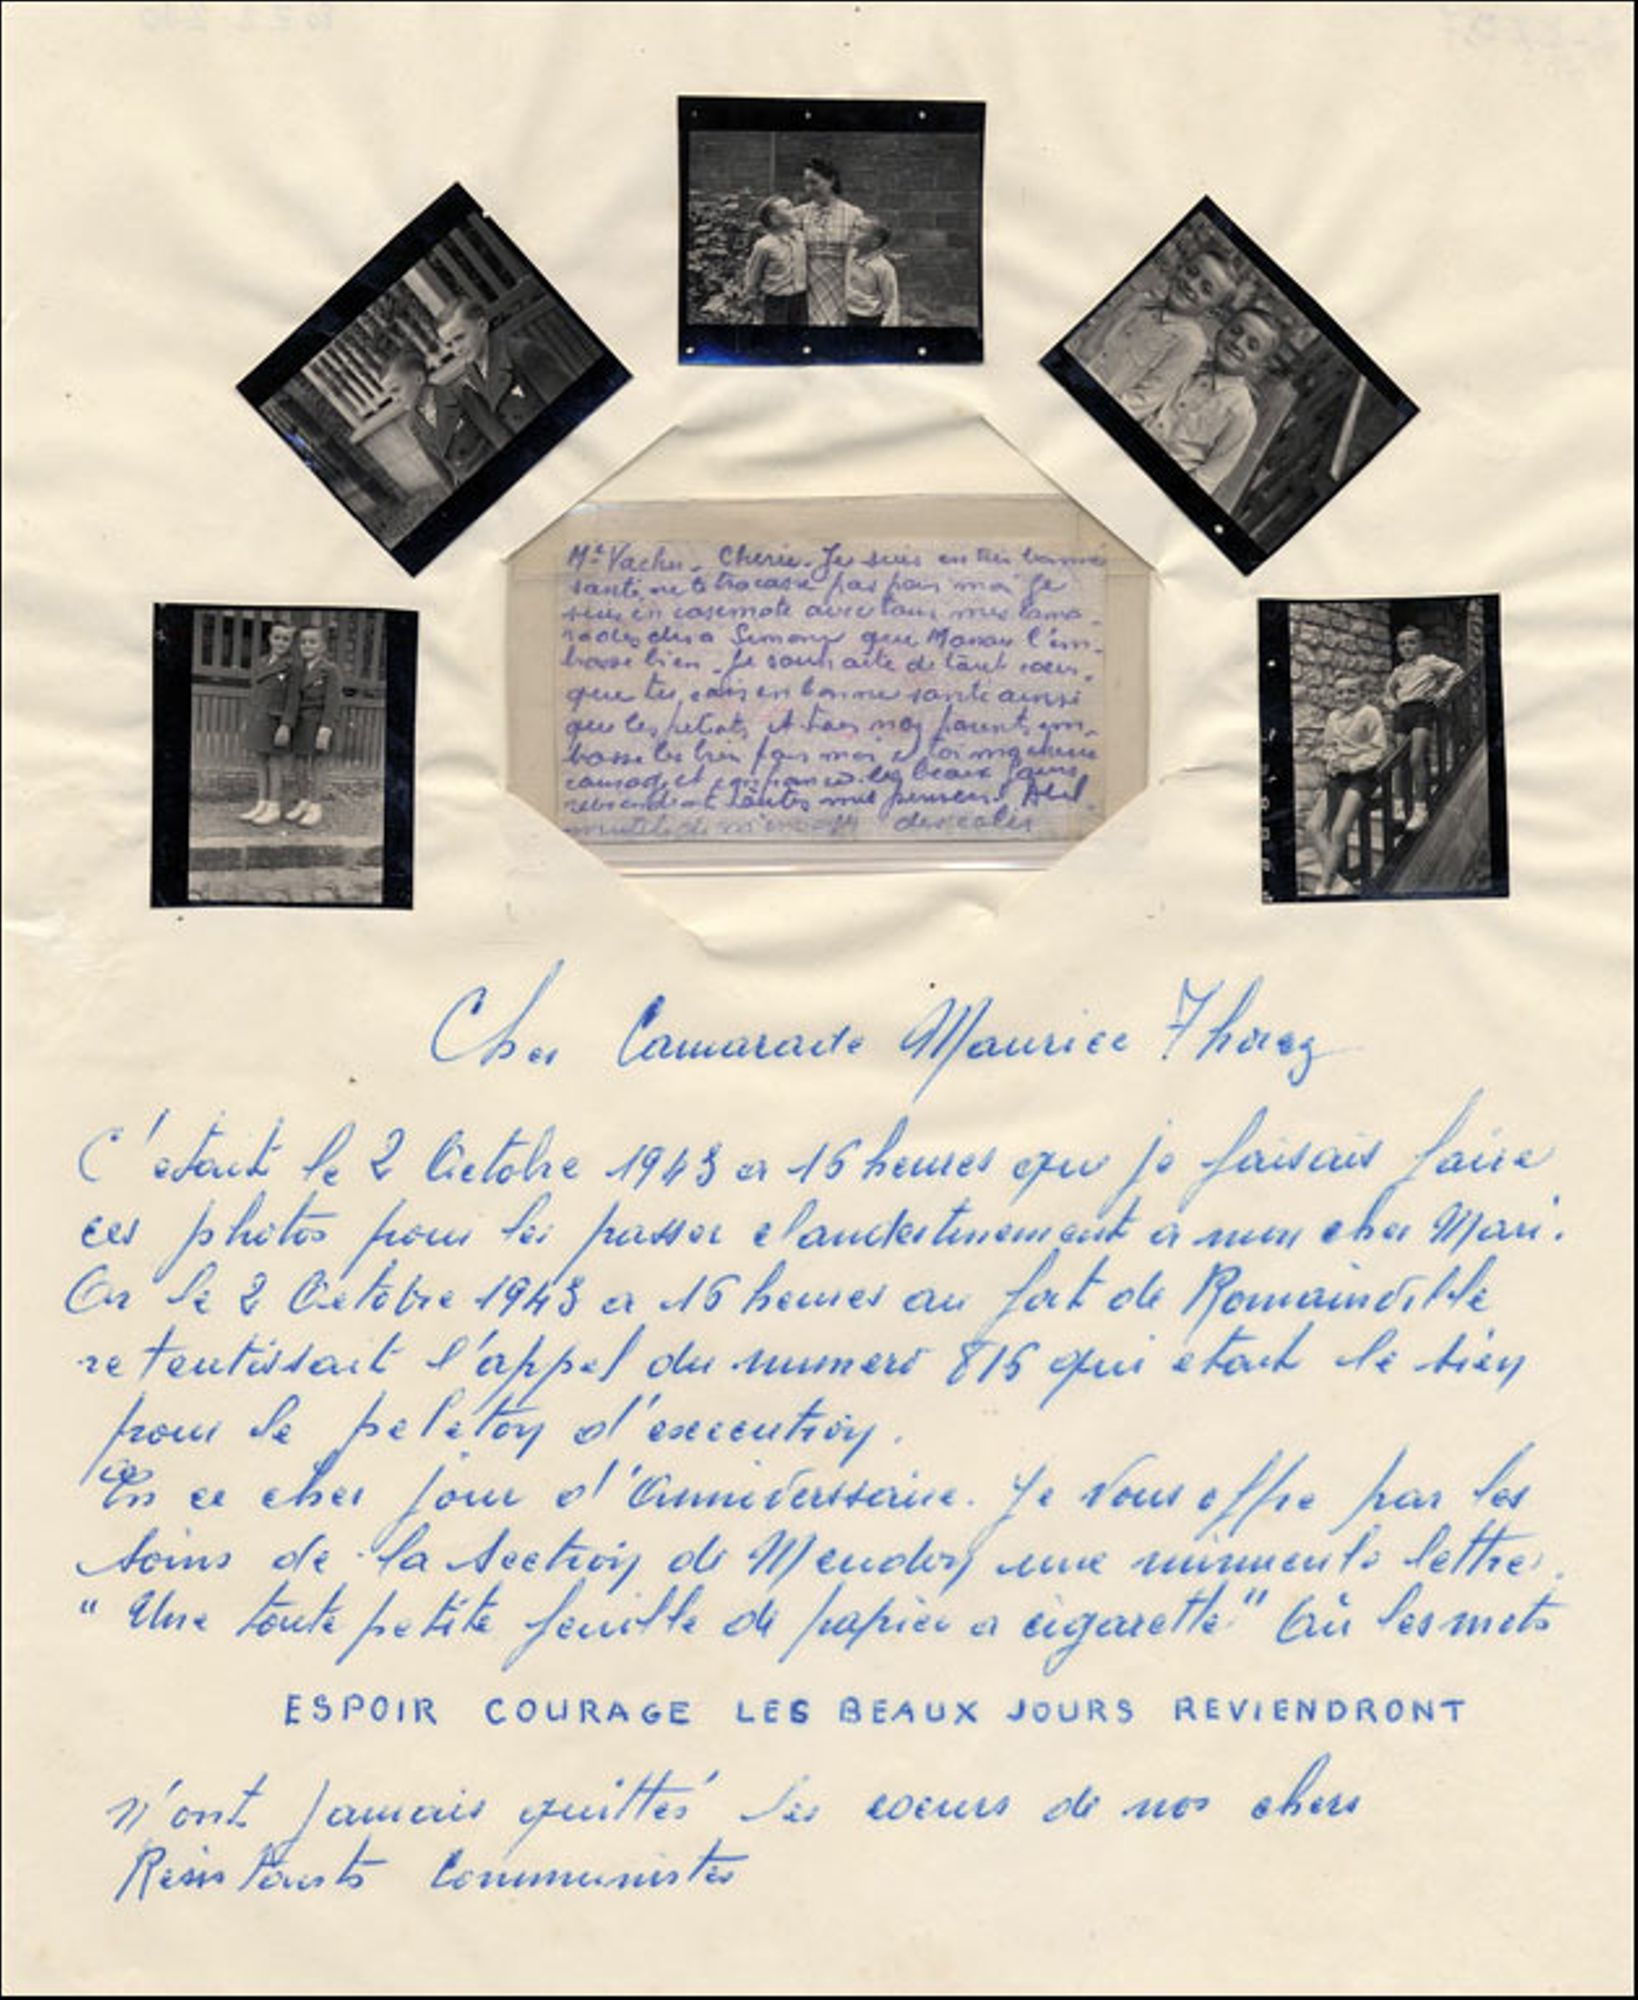 Me Vachu. Cherie. Je suis en très bonne
santé, ne te tracasse pas pour moi je
suis en casemate avec tous mes cama-
rades dis a Simone que Manau l'em-
brasse bien. Je souhaite de tout coeur,
que tu sois en bonne santé ainsi
que les petiots et tous nos parents em-
brasse les bien pour moi et toi
courage et confiance. les beaux jours
reviendront toutes mes pensées. Abel.
inutile de m'envoyer des colis
Cher Camarade Maurice Thorez
C'etait le 2 Octobre 1943 a 16 heures que je faisais faire
ces photos pour les passer clandestinement a mon cher Mari.
Or le 2 Octobre 1943 a 16 heures au fort de Romainville
retentissait l'appel du numero 815 qui etait le sien
pour le peleton d'execution.
En ce cher jour d'Anniverssaire. Je vous offre par les
soins de la section de Meudon une minuscule lettre.
"Une toute petite feuille de papier a cigarette" Où les mots
ESPOIR COURAGE LES BEAUX JOURS REVIENDRONT
n'ont jamais quittés les coeurs de nos chers
Résistants Communistes